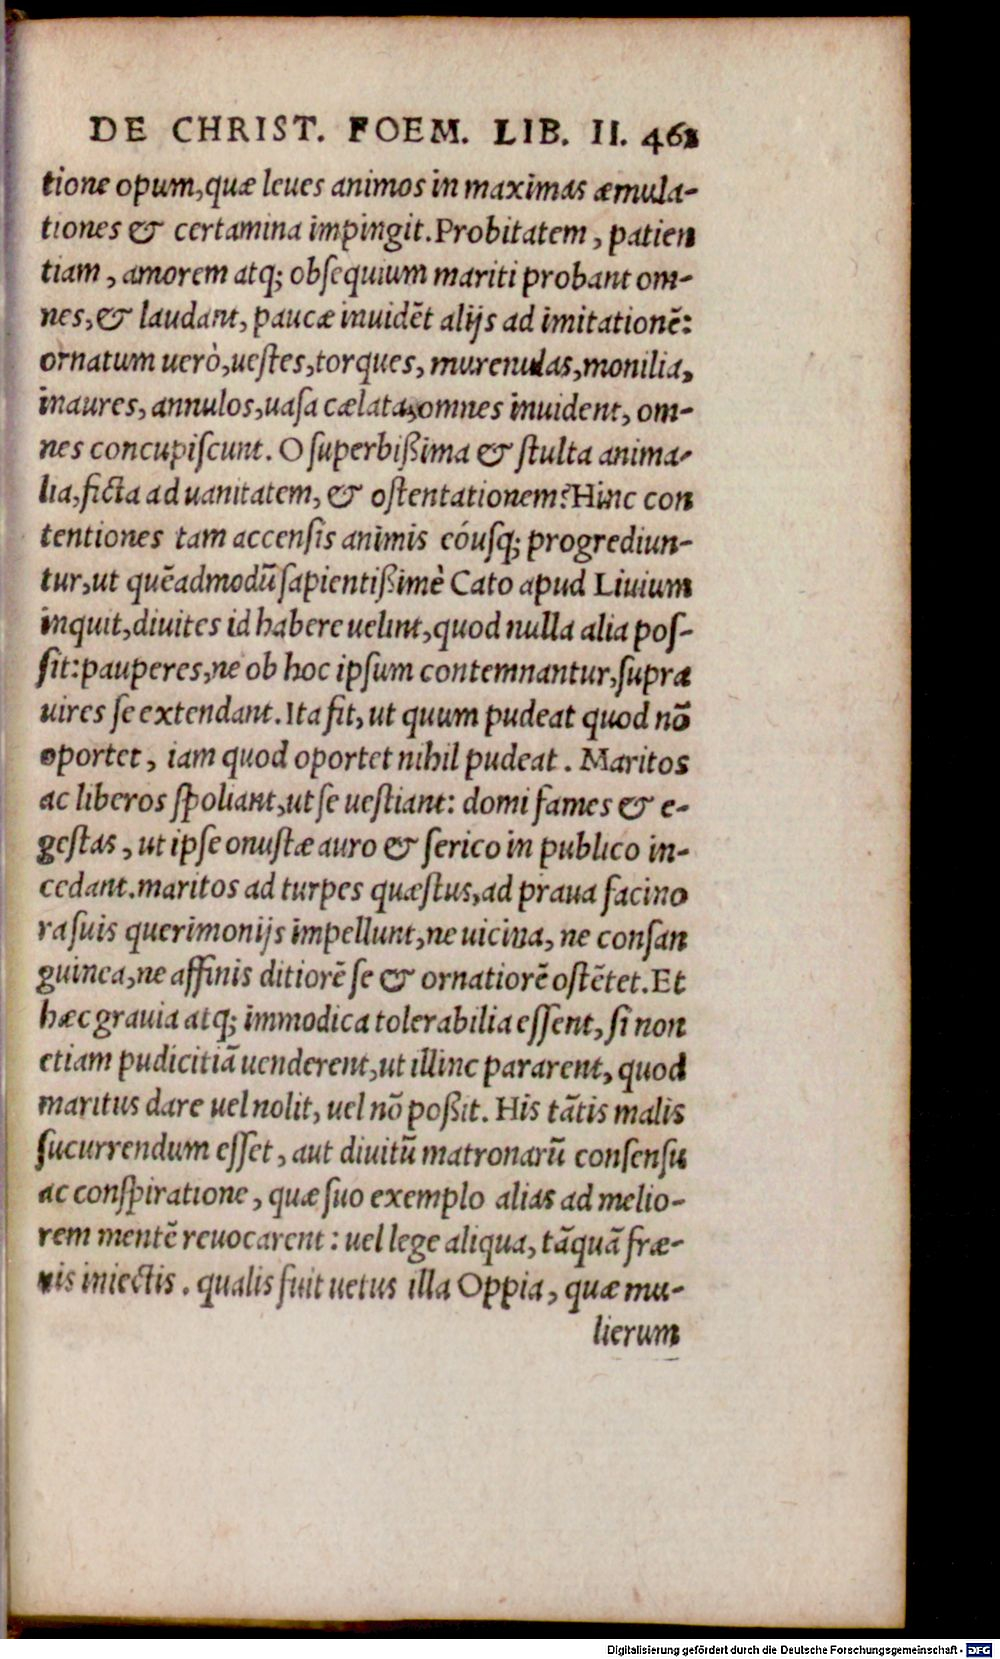 DE CHRIST. FOEM. LIB. II. 461
tione opum, quæ leues animos in maximas æmula-
tiones & certamina impingit. Probitatem, patien
tiam, amorem atq; obsequium mariti probant om-
nes, & laudant, paucæ inuidēt alijs ad imitationē:
ornatum uerò, uestes, torques, murenulas, monilia,
inaures, annulos, uasa cælata, omnes inuident, om-
nes concupiscunt. O superbißima & stulta anima-
lia, ficta ad uanitatem, & ostentationem? Hinc con
tentiones tam accensis animis eóusq; progrediun-
tur, ut quēadmodū sapientißimè Cato apud Liuium
inquit, diuites id habere uelint, quod nulla alia pos-
sit: pauperes, ne ob hoc ipsum contemnantur, supra
uires se extendant. Ita fit, ut quum pudeat quod nō
oportet, iam quod oportet nihil pudeat. Maritos
ac liberos spoliant, ut se uestiant: domi fames & e-
gestas, ut ipse onustæ auro & serico in publico in-
cedant. maritos ad turpes quæstus, ad praua facino
ra suis querimonijs impellunt, ne uicina, ne consan
guinea, ne affinis ditiorē se & ornatiorē ostētet. Et
hæc grauia atq; immodica tolerabilia essent, si non
etiam pudicitiā uenderent, ut illinc pararent, quod
maritus dare uel nolit, uel nō poßit. His tātis malis
sucurrendum esset, aut diuitū matronarū consensu
ac conspiratione, quæ suo exemplo alias ad melio-
rem mentē reuocarent: uel lege aliqua, tāquā fræ-
nis iniectis. qualis fuit uetus illa Oppia, quæ mu-
lierum
Digitalisierung gefördert durch die Deutsche Forschungsgemeinschaft - DFG